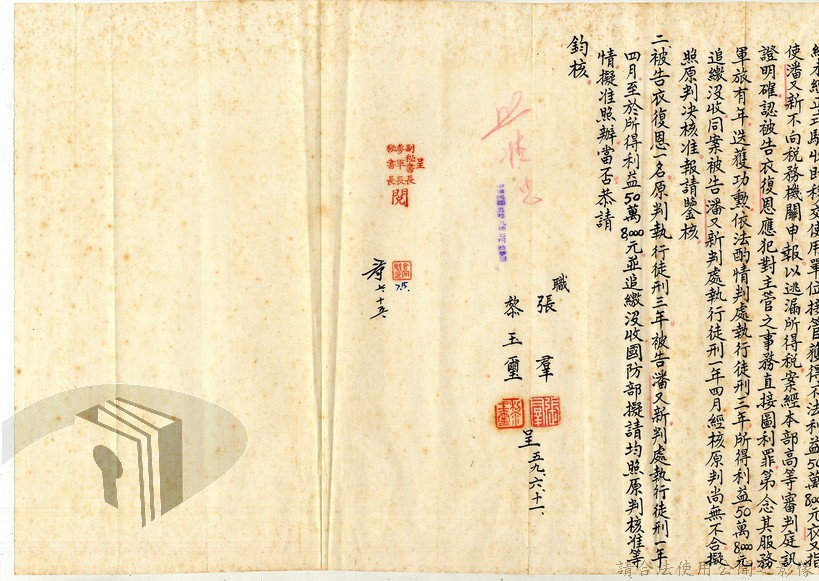 經本經正式驗收時移交使用單位接管獲得不法利益50萬8,000元衣又指
使潘又新不向稅務機關申報以逃漏所得稅案經本部高等審判庭訊
證明確認被告衣復恩應犯對主管之事務直接圖利罪第念其服務
軍旅有年迭獲功勳依法酌情判處執行徒刑三年所得利益50萬8,000元
追繳沒收同案被告潘又新判處執行徒刑一年四月經核原判尚無不合擬
照原判決核准報請鑒核
二被告衣復恩一名原判執行徒刑三年被告潘又新判處執行徒刑一年
四月至於所得利益50萬8,000元並追繳沒收國防部擬請均照原判核准等
情擬准照辦當否恭請
鈞核
職
張羣
黎玉璽
呈
五九、六、十一、
呈
副秘書長
參軍長
秘書長
閱
7.15.
七、十五、
請合法使用公開之影像